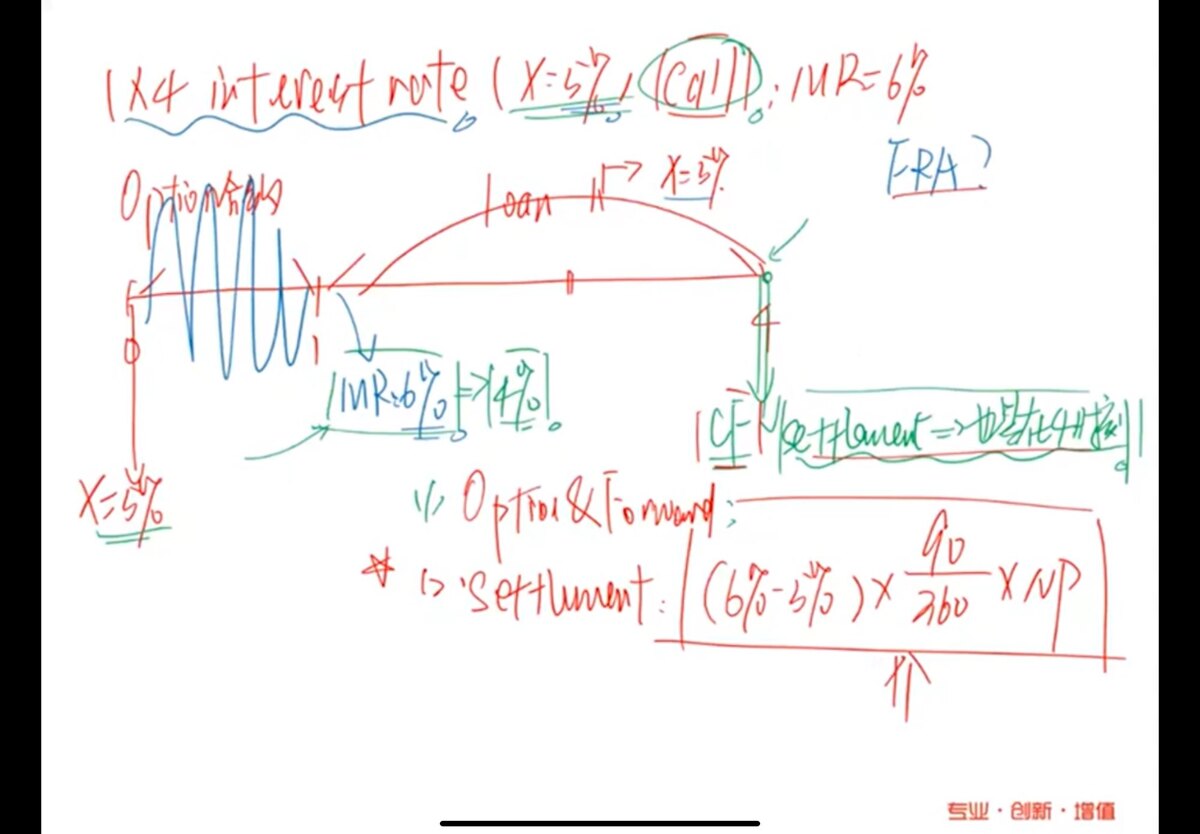 1×4 interest rate (X=5%, |Call|): MR=6%
FRA?
Option合约
loan → X=5%
0 1 4
|MR:6%| => |4%|.
|CF| |Settlement =>
X=5%
(1) Option & Forward:
☆ 1> Settlement: (6%-5%) × 90/360 × NP
专业·创新·增值